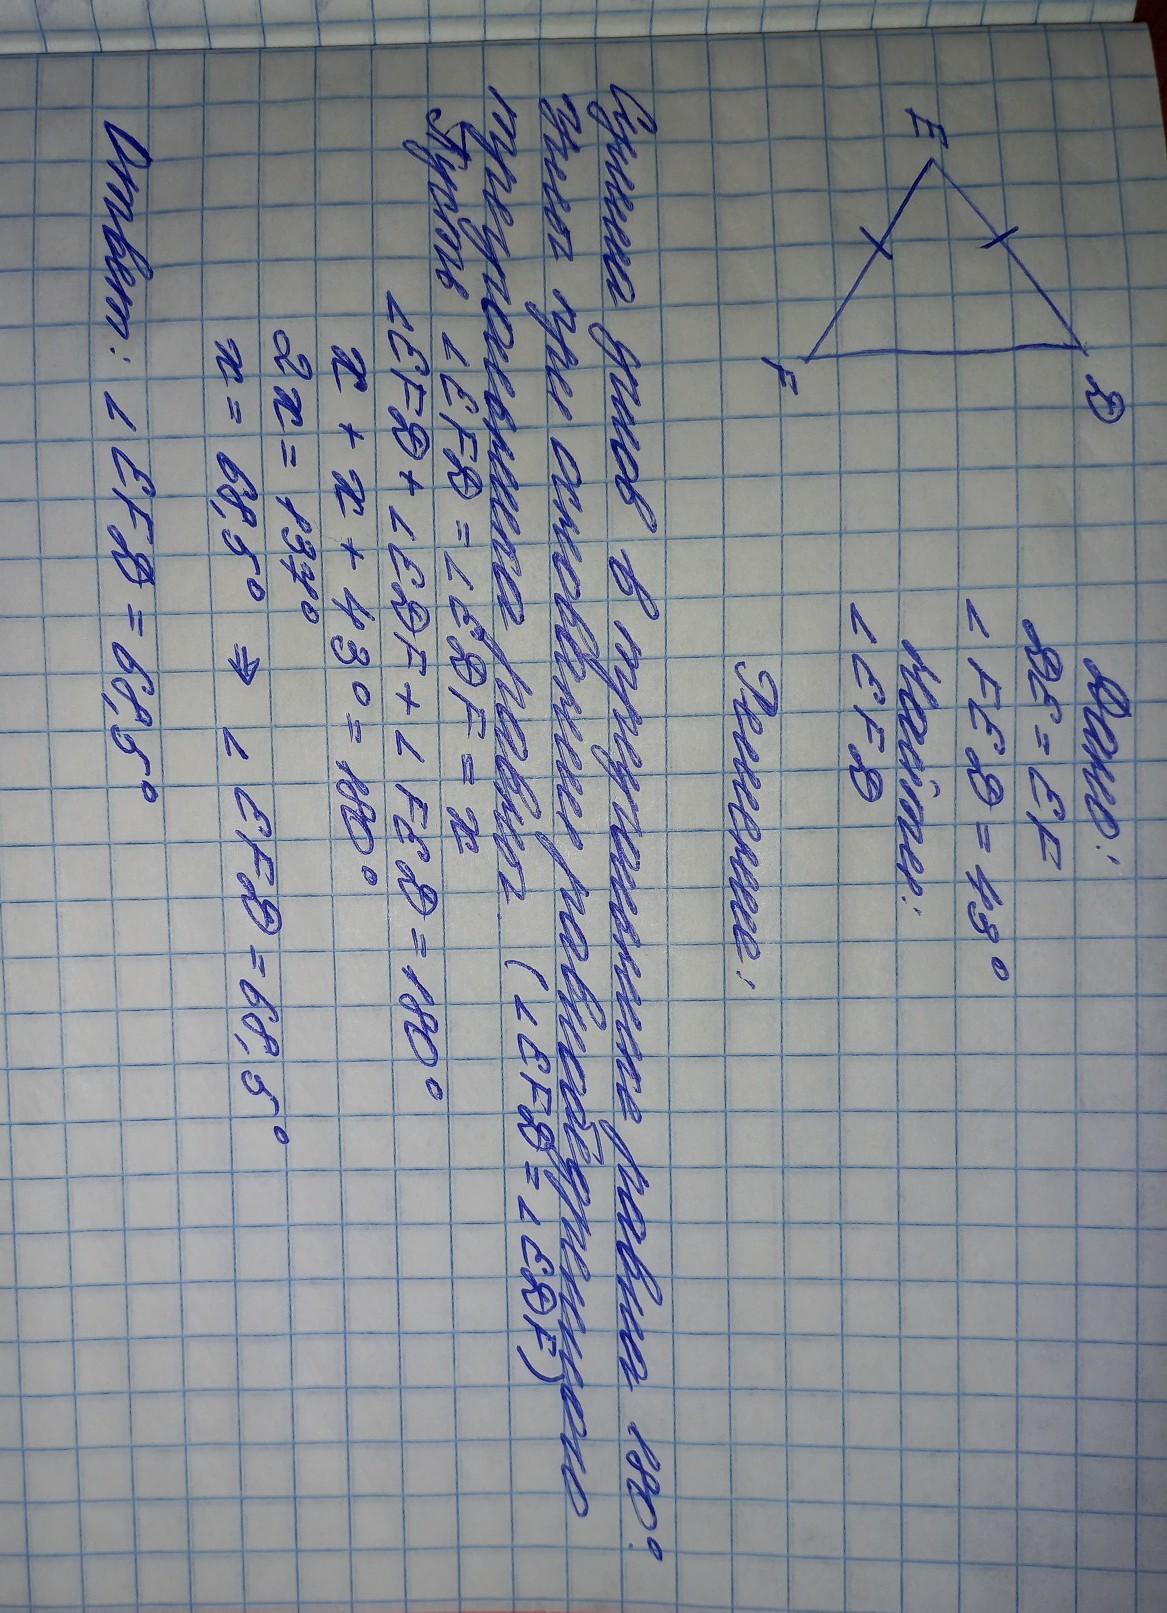 E
D
F
Дано:
DE = EF
∠ FED = 43°
Найти:
∠ EFD
Решение:
Сумма углов в треугольнике равна 180°.
Углы при основание равнобедренного
треугольника равны (∠EFD = ∠EDF)
Пусть ∠EFD = ∠EDF = x
∠EFD + ∠EDF + ∠ FED = 180°
x + x + 43° = 180°
2x = 137°
x = 68,5° ⇒ ∠ EFD = 68,5°
Ответ: ∠ EFD = 68,5°